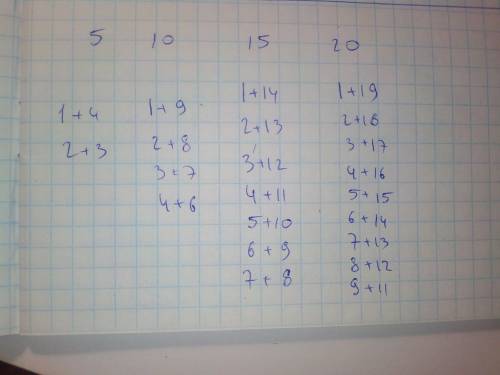 5 10 15 20
1+4 1+9 1+14 1+19
2+3 2+8 2+13 2+18
3+7 3+12 3+17
4+6 4+11 4+16
5+10 5+15
6+9 6+14
7+8 7+13
8+12
9+11